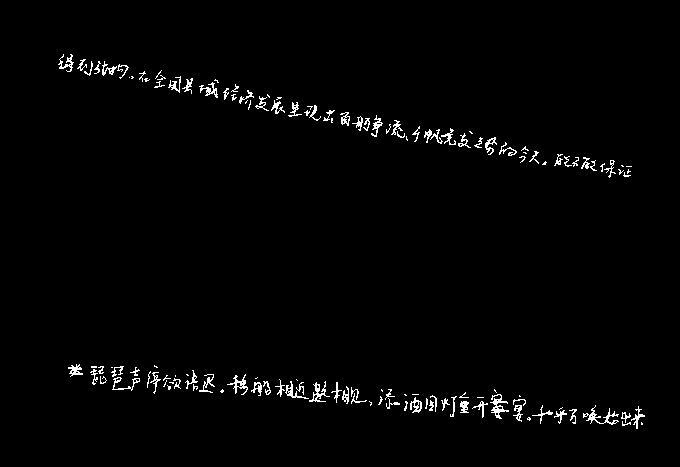 得到的。在全国县域经济发展呈现出百舸争流、千帆竞发之势的今天，能不能保证
琵琶声停欲语迟。移船相近邀相见，添酒回灯重开宴。千呼万唤始出来